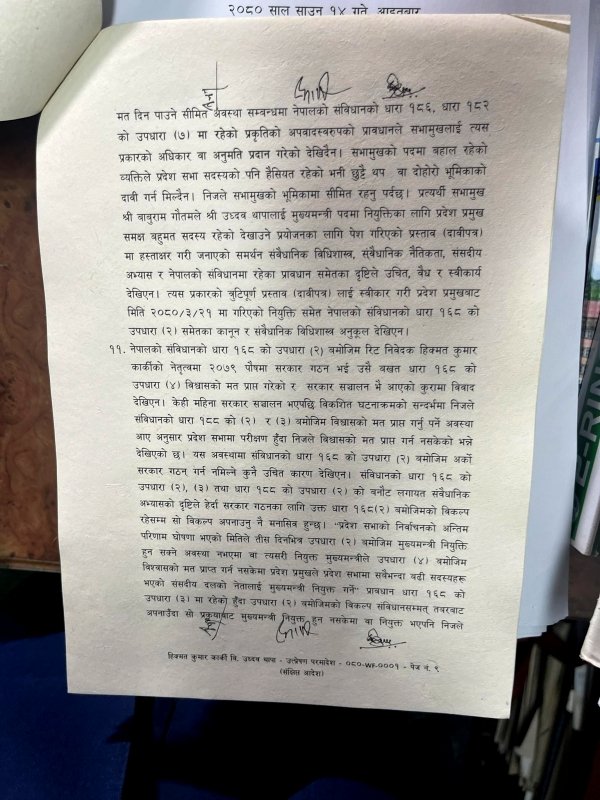 २०८० साल साउन १४ गते, आइतबार
मत दिन पाउने सीमित अवस्था सम्बन्धमा नेपालको संविधानको धारा १८६, धारा १८२
को उपधारा (७) मा रहेको प्रकृतिको अपवादस्वरुपको प्रावधानले सभामुखलाई त्यस
प्रकारको अधिकार वा अनुमति प्रदान गरेको देखिदैन। सभामुखको पदमा बहाल रहेको
व्यक्तिले प्रदेश सभा सदस्यको पनि हैसियत रहेको भनी छुट्टै थप वा दोहोरो भूमिकाको
दावी गर्न मिल्दैन। निजले सभामुखको भूमिकामा सीमित रहनु पर्दछ। प्रत्यर्थी सभामुख
श्री बाबुराम गौतमले श्री उध्दव थापालाई मुख्यमन्त्री पदमा नियुक्तिका लागि प्रदेश प्रमुख
समक्ष बहुमत सदस्य रहेको देखाउने प्रयोजनका लागि पेश गरिएको प्रस्ताव (दावीपत्र)
मा हस्ताक्षर गरी जनाएको समर्थन संवैधानिक विधिशास्त्र, संवैधानिक नैतिकता, संसदीय
अभ्यास र नेपालको संविधानमा रहेका प्रावधान समेतका दृष्टिले उचित, वैध र स्वीकार्य
देखिएन। त्यस प्रकारको त्रुटिपूर्ण प्रस्ताव (दावीपत्र) लाई स्वीकार गरी प्रदेश प्रमुखबाट
मिति २०८०/३/२१ मा गरिएको नियुक्ति समेत नेपालको संविधानको धारा १६८ को
उपधारा (२) समेतका कानून र संवैधानिक विधिशास्त्र अनुकूल देखिएन।
११. नेपालको संविधानको धारा १६८ को उपधारा (२) बमोजिम रिट निवेदक हिक्मत कुमार
कार्कीको नेतृत्वमा २०७९ पौषमा सरकार गठन भई उसै बखत धारा १६८ को
उपधारा (४) विश्वासको मत प्राप्त गरेको र सरकार सञ्चालन भै आएको कुरामा विवाद
देखिएन। केही महिना सरकार सञ्चालन भएपछि विकशित घटनाक्रमको सन्दर्भमा निजले
संविधानको धारा १८८ को (२) र (३) बमोजिम विश्वासको मत प्राप्त गर्नु पर्ने अवस्था
आए अनुसार प्रदेश सभामा परीक्षण हुँदा निजले विश्वासको मत प्राप्त गर्न नसकेको भन्ने
देखिएको छ। यस अवस्थामा संविधानको धारा १६८ को उपधारा (२) बमोजिम अर्को
सरकार गठन गर्न नमिल्ने कुनै उचित कारण देखिएन। संविधानको धारा १६८ को
उपधारा (२), (३) तथा धारा १८८ को उपधारा (२) को बनौट लगायत संवैधानिक
अभ्यासको दृष्टिले हेर्दा सरकार गठनका लागि उक्त धारा १६८(२) बमोजिमको विकल्प
रहेसम्म सो विकल्प अपनाउनु नै मनासिव हुन्छ। "प्रदेश सभाको निर्वाचनको अन्तिम
परिणाम घोषणा भएको मितिले तीस दिनभित्र उपधारा (२) बमोजिम मुख्यमन्त्री नियुक्ति
हुन सक्ने अवस्था नभएमा वा त्यसरी नियुक्त मुख्यमन्त्रीले उपधारा (४) बमोजिम
विश्वासको मत प्राप्त गर्न नसकेमा प्रदेश प्रमुखले प्रदेश सभामा सबैभन्दा बढी सदस्यहरू
भएको संसदीय दलको नेतालाई मुख्यमन्त्री नियुक्त गर्ने" प्रावधान धारा १६८ को
उपधारा (३) मा रहेको हुँदा उपधारा (२) बमोजिमको विकल्प संविधानसम्मत् तवरबाट
अपनाउँदा सो प्रकृयाबाट मुख्यमन्त्री नियुक्त हुन नसकेमा वा नियुक्त भएपनि निजले
हिक्मत कुमार कार्की वि. उध्दव थापा - उत्प्रेषण परमादेश - ०८०-WF-०००१ - पेज नं. ९
(संक्षिप्त आदेश)